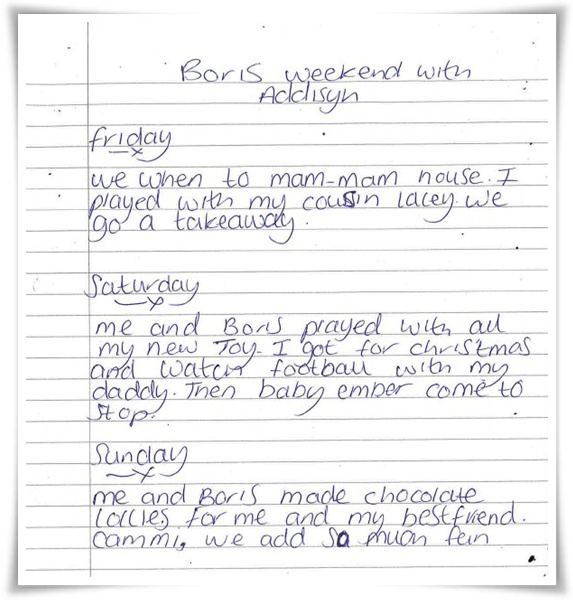 Boris weekend with
Addisyn
friday
we when to mam-mam house. I
played with my cousin lacey. we
go a takeaway.
Saturday
me and Boris played with all
my new Toy. I got for christmas
and watch football with my
daddy. Then baby ember come to
stop.
Sunday
me and Boris made chocolate
lollies for me and my bestfriend.
Cammi, we add so much fun